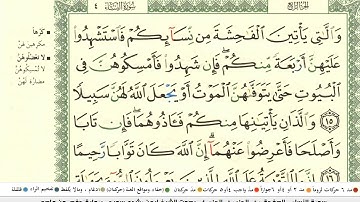 الجزء الرابع
سورة النساء
٤
وَٱلَّٰتِى يَأْتِينَ ٱلْفَٰحِشَةَ مِن نِّسَآئِكُمْ فَٱسْتَشْهِدُوا۟
عَلَيْهِنَّ أَرْبَعَةً مِّنكُمْ ۖ فَإِن شَهِدُوا۟ فَأَمْسِكُوهُنَّ فِى
ٱلْبُيُوتِ حَتَّىٰ يَتَوَفَّىٰهُنَّ ٱلْمَوْتُ أَوْ يَجْعَلَ ٱللَّهُ لَهُنَّ سَبِيلًا
١٥ وَٱلَّذَانِ يَأْتِيَٰنِهَا مِنكُمْ فَـَٔاذُوهُمَا ۖ فَإِن تَابَا
وَأَصْلَحَا فَأَعْرِضُوا۟ عَنْهُمَآ ۗ إِنَّ ٱللَّهَ كَانَ تَوَّابًا رَّحِيمًا
كرهًا
مكرهين لهن
لا تعضلوهن
لا تمسكوهن
مضارة لهن